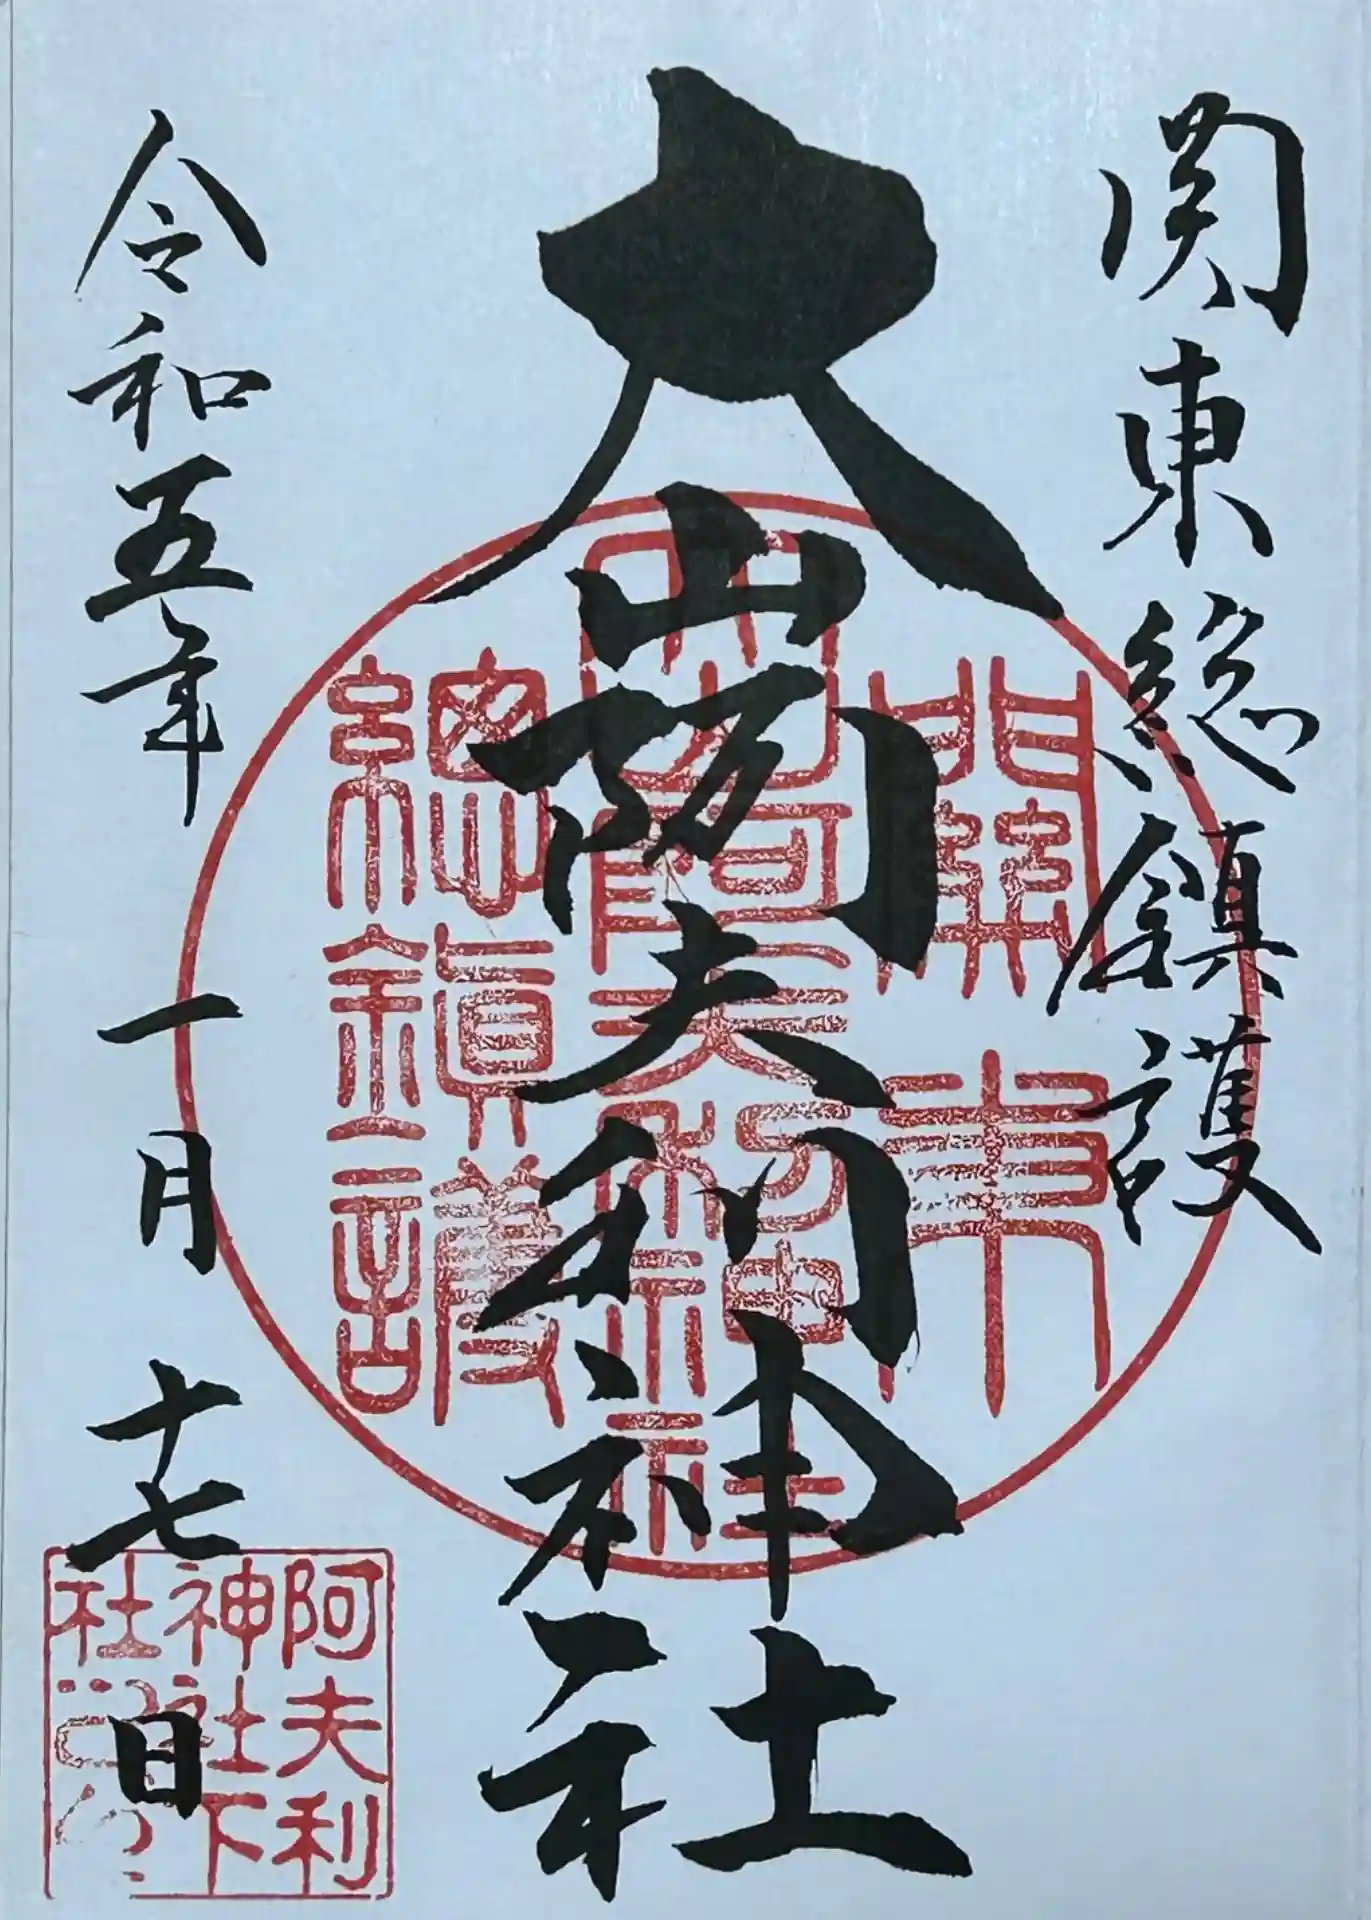 関東総鎮護
大山阿夫利神社
令和五年 一月 十七日
關東
大山阿夫利神社
總鎮護
阿夫利
神社下
社